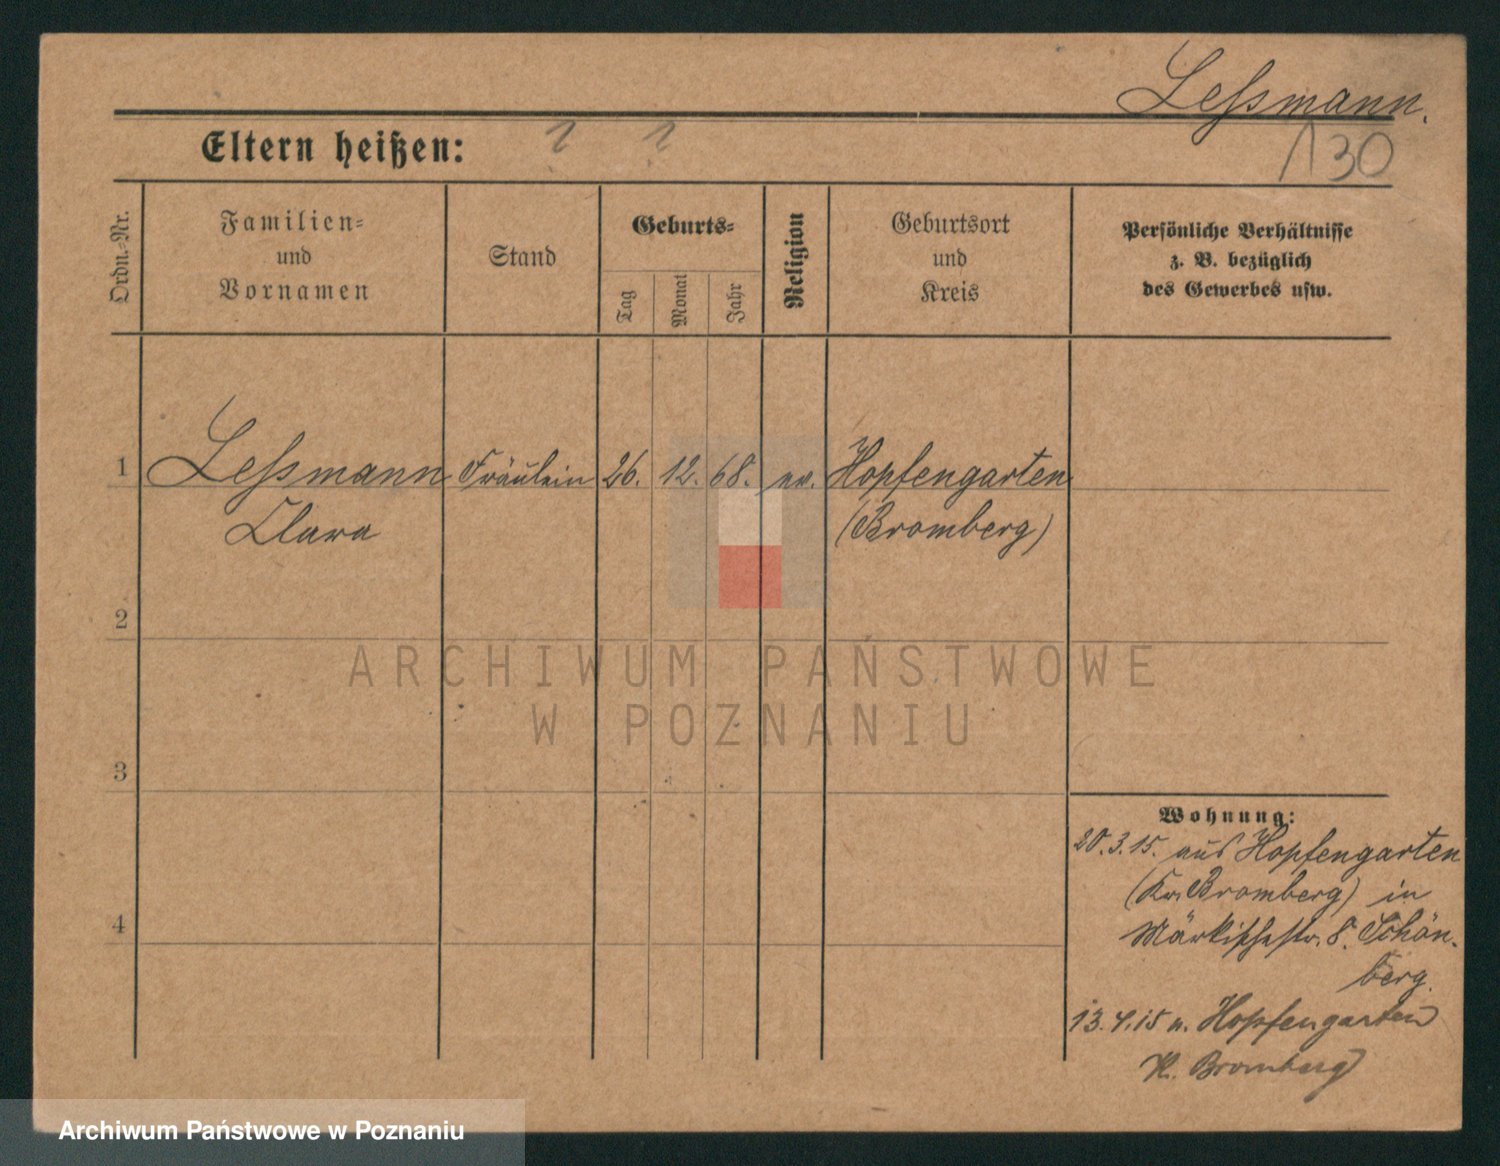 Leßmann.
130
Eltern heißen:
Ordn.-Nr.
Familien-
und
Vornamen
Stand
Geburts-
Tag
Monat
Jahr
Religion
Geburtsort
und
Kreis
Persönliche Verhältnisse
z. B. bezüglich
des Gewerbes usw.
1 Leßmann Fräulein 26. 12. 68. ev. Hopfengarten
Clara (Bromberg)
2
3
4
Wohnung:
20.3.15. aus Hopfengarten
(Kr. Bromberg) in
Märkischestr. 8. Schön-
berg.
13.4.15 n. Hopfengarten
K. Bromberg
ARCHIWUM PAŃSTWOWE
W POZNANIU
Archiwum Państwowe w Poznaniu